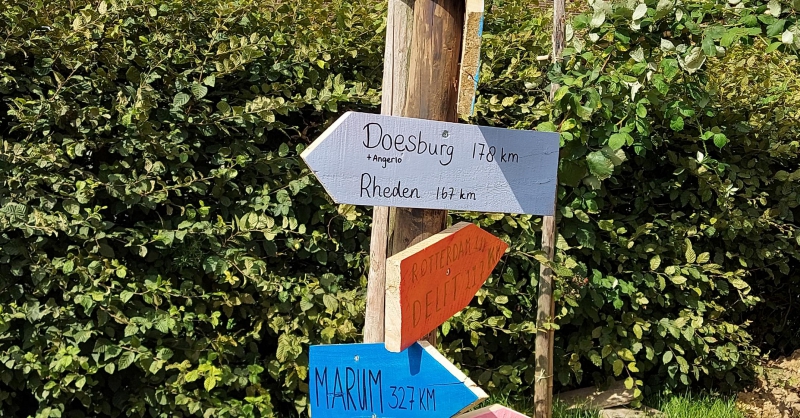 Doesburg 178 km
+ Angerlo
Rheden 167 km
ROTTERDAM
DELFT
MARUM 327 KM